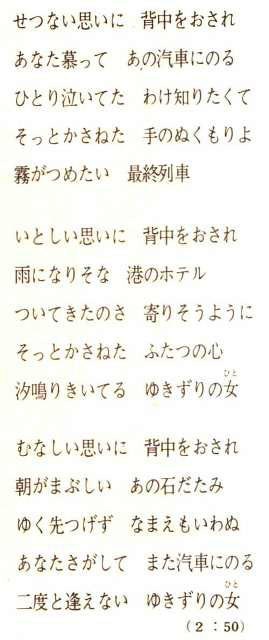 せつない思いに　背中をおされ
あなた慕って　あの汽車にのる
ひとり泣いてた　わけ知りたくて
そっとかさねた　手のぬくもりよ
霧がつめたい　最終列車
いとしい思いに　背中をおされ
雨になりそな　港のホテル
ついてきたのさ　寄りそうように
そっとかさねた　ふたつの心
汐鳴りきいてる　ゆきずりの女
ひと
むなしい思いに　背中をおされ
朝がまぶしい　あの石だたみ
ゆく先つげず　なまえもいわぬ
あなたさがして　また汽車にのる
二度と逢えない　ゆきずりの女
ひと
(2：50)